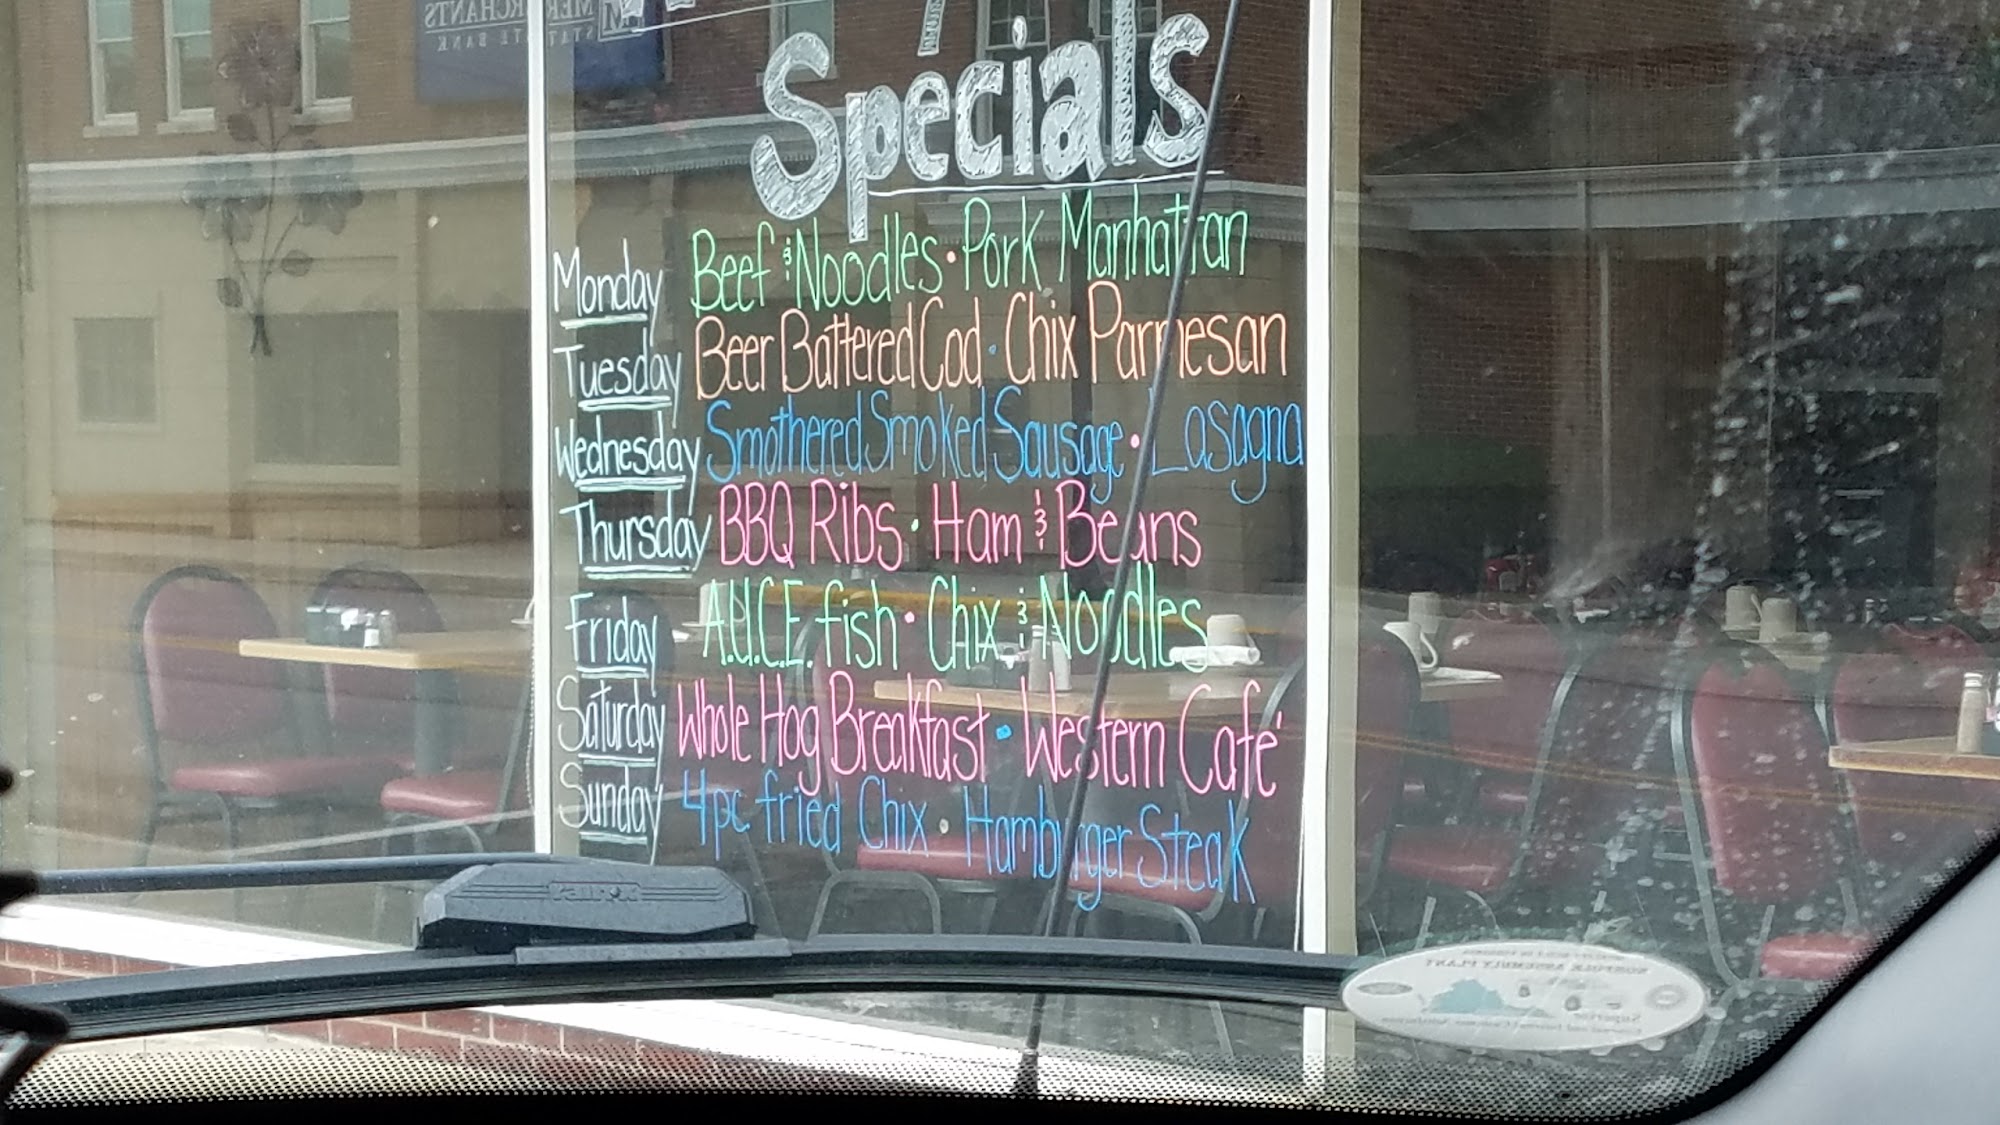 MERCHANTS
STATE BANK
Specials
Monday Beef & Noodles • Pork Manhattan
Tuesday Beer Battered Cod • Chix Parmesan
Wednesday Smothered Smoked Sausage • Lasagna
Thursday BBQ Ribs • Ham & Beans
Friday A.U.C.E. fish • Chix & Noodles
Saturday Whole Hog Breakfast • Western Café
Sunday 4pc fried Chix • Hamburger Steak
NORFOLK ASSEMBLY PLANT